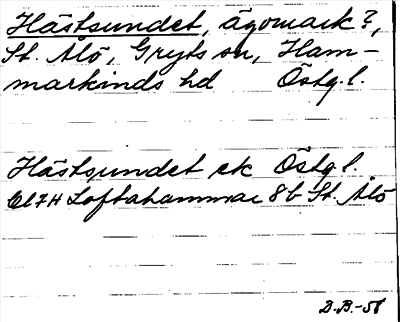 Hästsundet, ägomark?,
St. Ålö, Gryts sn, Ham-
markinds hd Östg.l.
Hästsundet ek Östg.l.
61 7H Loftahammar 8b St. Ålö
D.B.-56